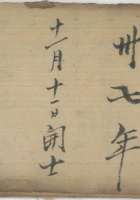 卅七年
十一月十一日開士